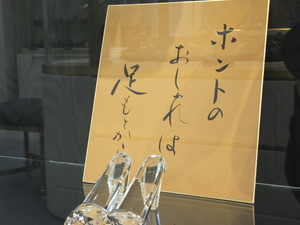 ホントの
おしゃれは
足もとから